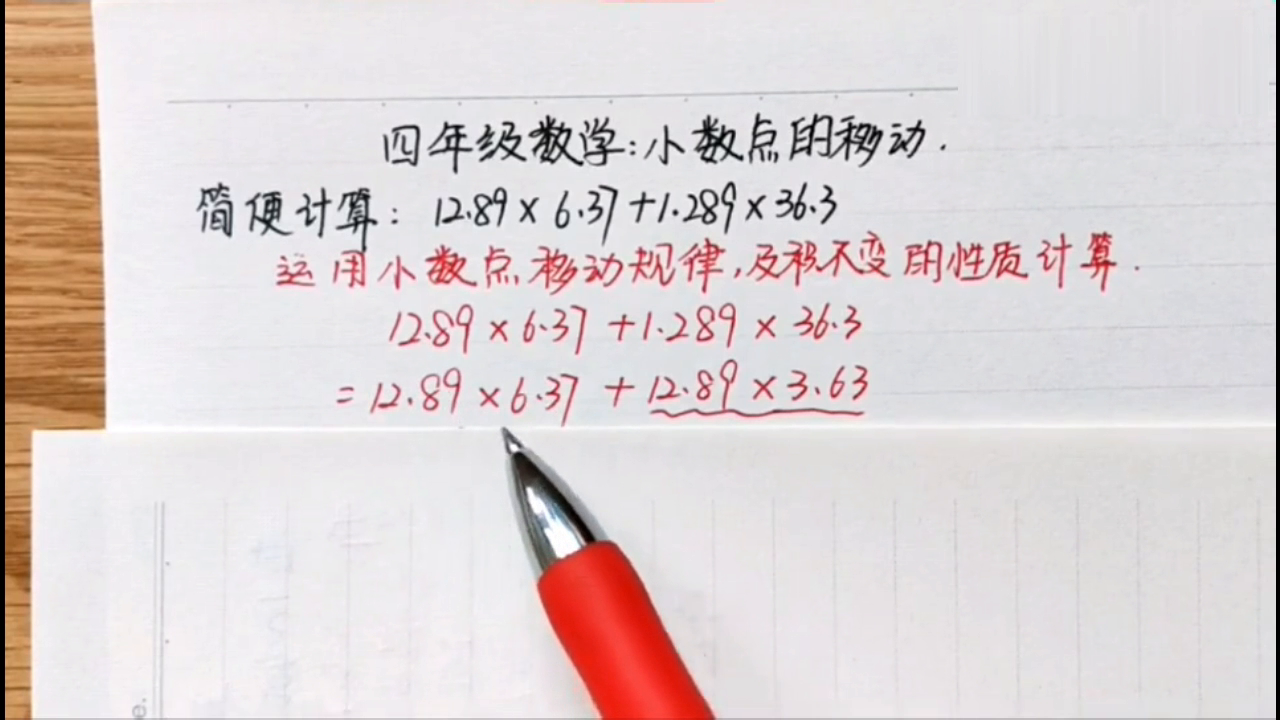 四年级数学:小数点的移动.
简便计算: 12.89×6.37+1.289×36.3
运用小数点移动规律,及积不变的性质计算.
12.89×6.37+1.289×36.3
=12.89×6.37+12.89×3.63
e.